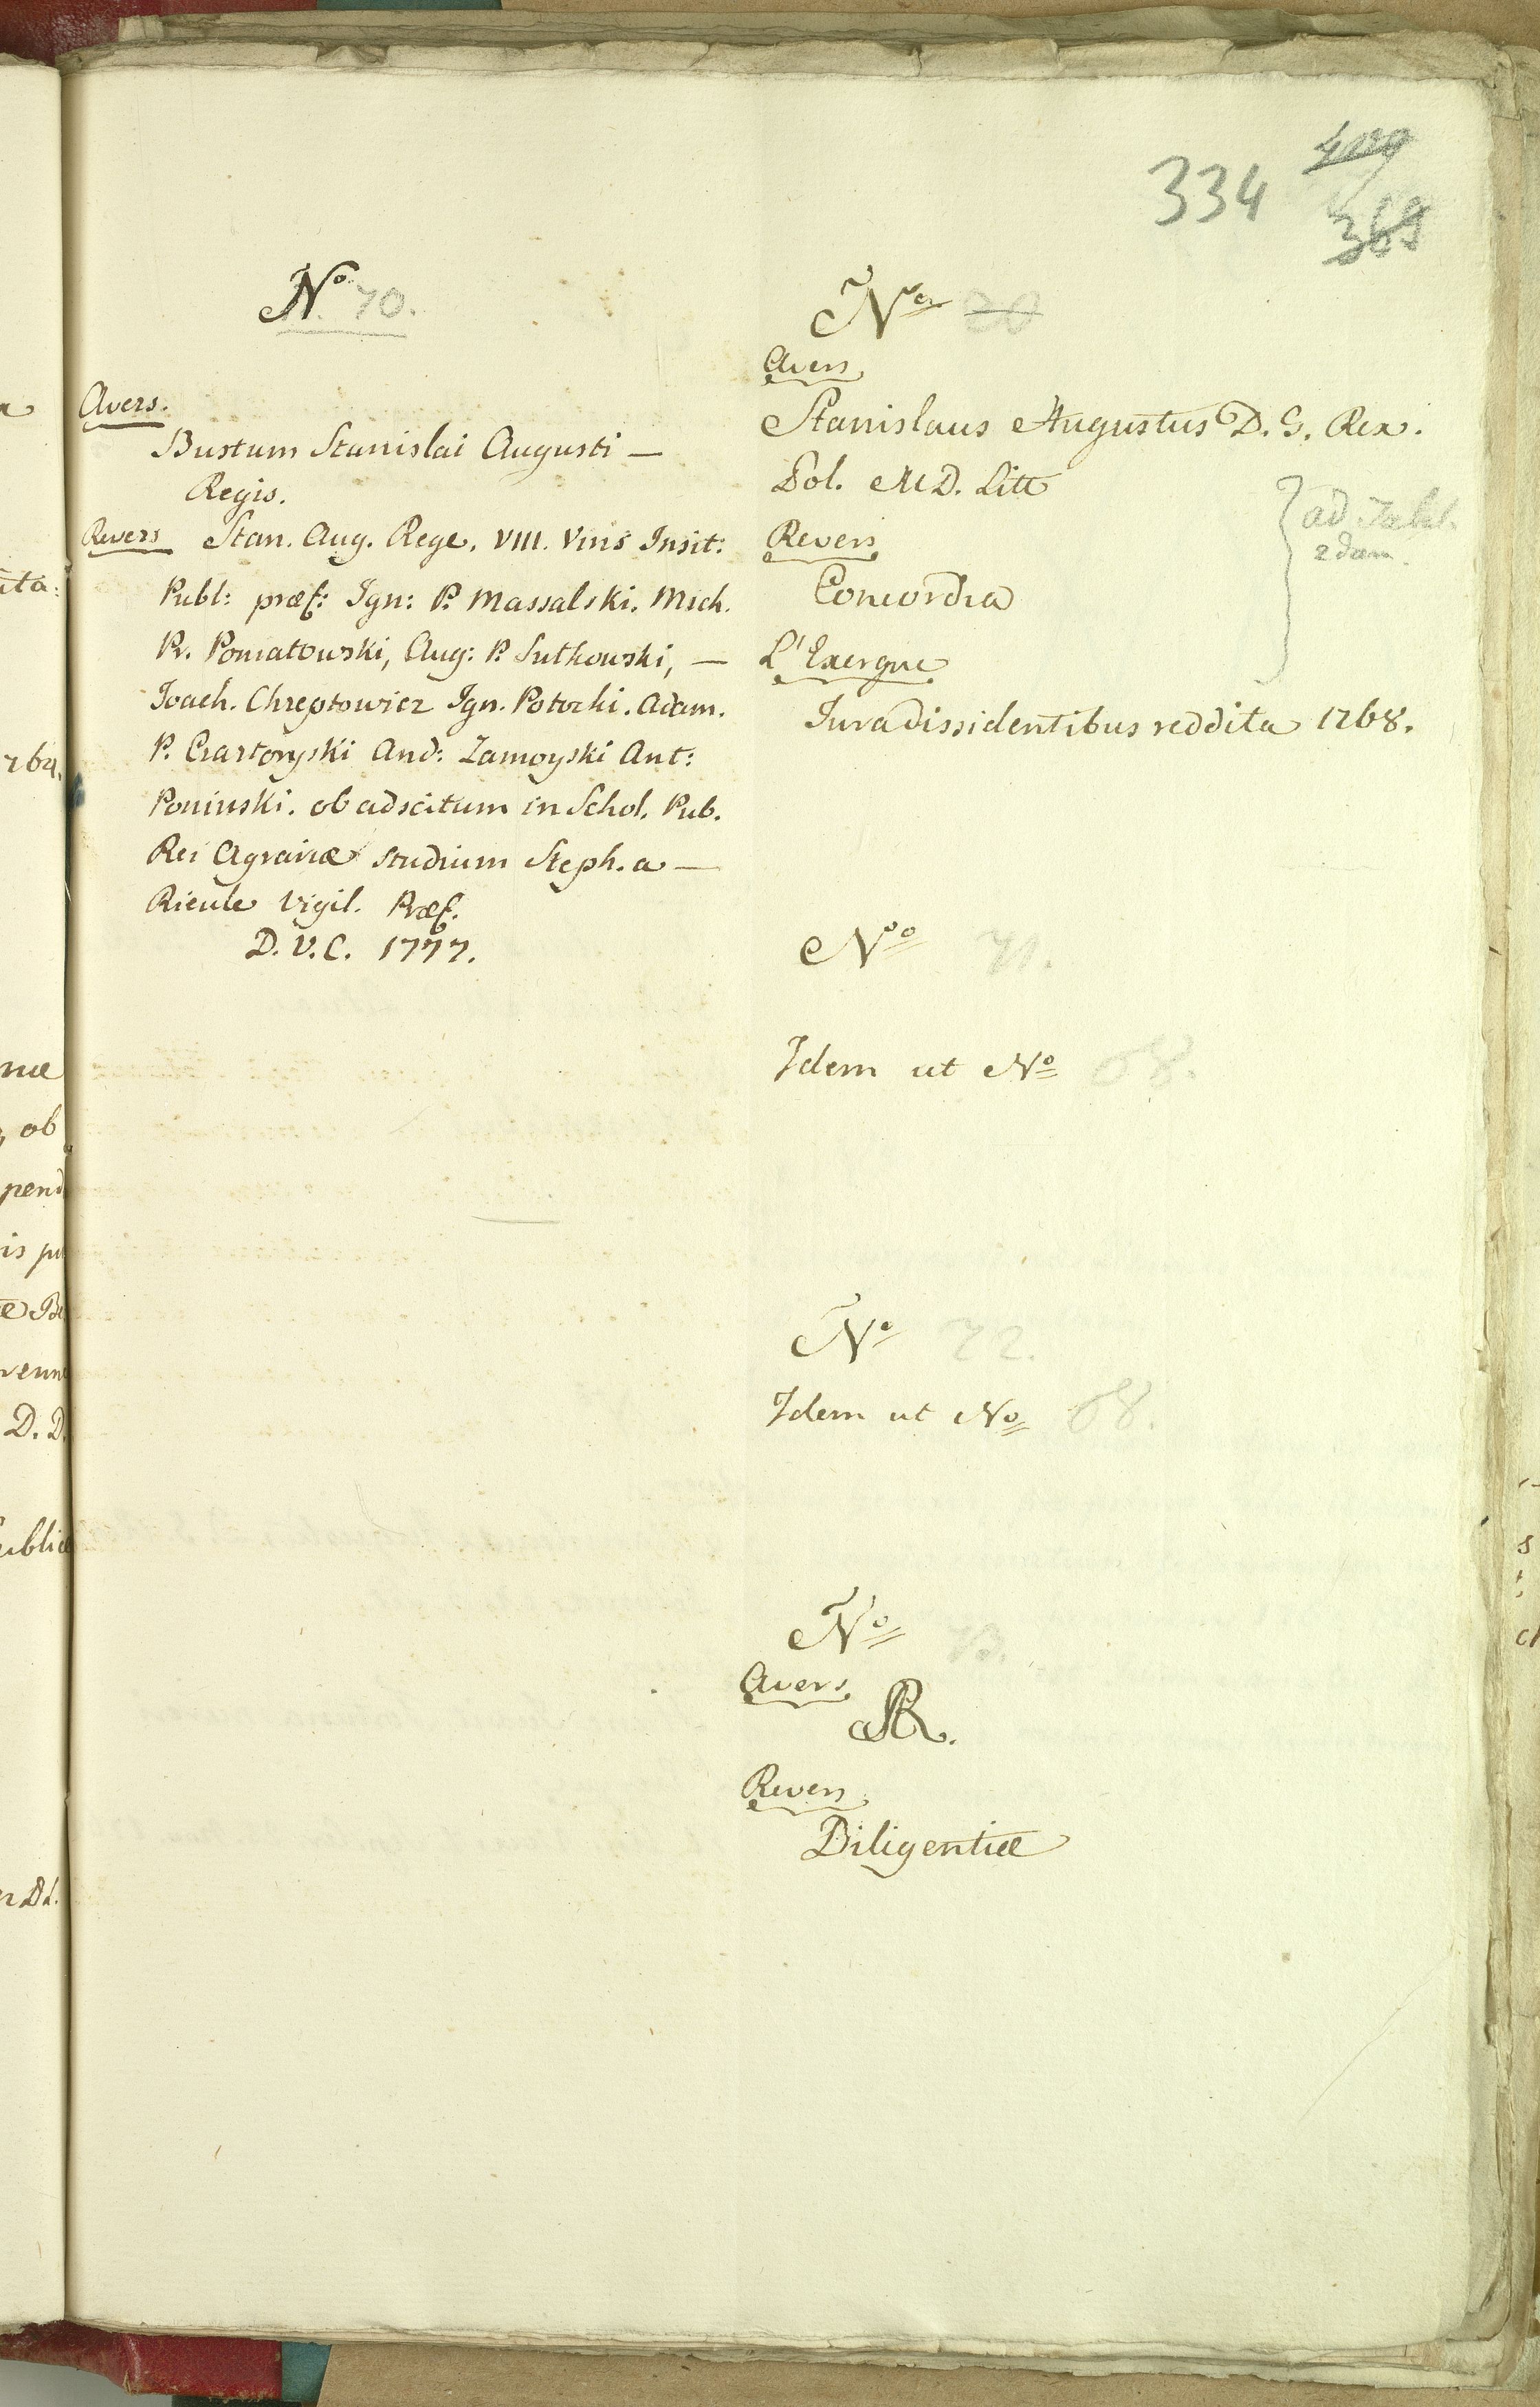 334
409
369
No 70.
Avers.
Bustum Stanislai Augusti —
Regis.
Revers Stan. Aug. Rege. VIII. Viris Insit:
Publ: præf: Ign: P. Massalski. Mich.
Pr. Poniatowski, Aug: P. Sulkowski, —
Ioach. Chreptowicz Ign. Potocki. Adam.
P. Czartoryski And: Zamoyski Ant:
Poninski. ob adscitum in Schol. Pub.
Rei Agrariæ studium Steph. a —
Rieule Vigil. Præf.
D. V. C. 1777.
No
Avers
Stanislaus Augustus D. G. Rex.
Pol. M D. Litt
Revers
Concordia
L'Exergue
Iura dissidentibus reddita 1768.
ad Tabl.
2dam.
No 71.
Idem ut No 68.
No 72.
Idem ut No 68.
No 73.
Avers
SAR.
Revers
Diligentiæ
ita:
764.
næ
ob
pend
is pu
venn
D. D.
ublicæ